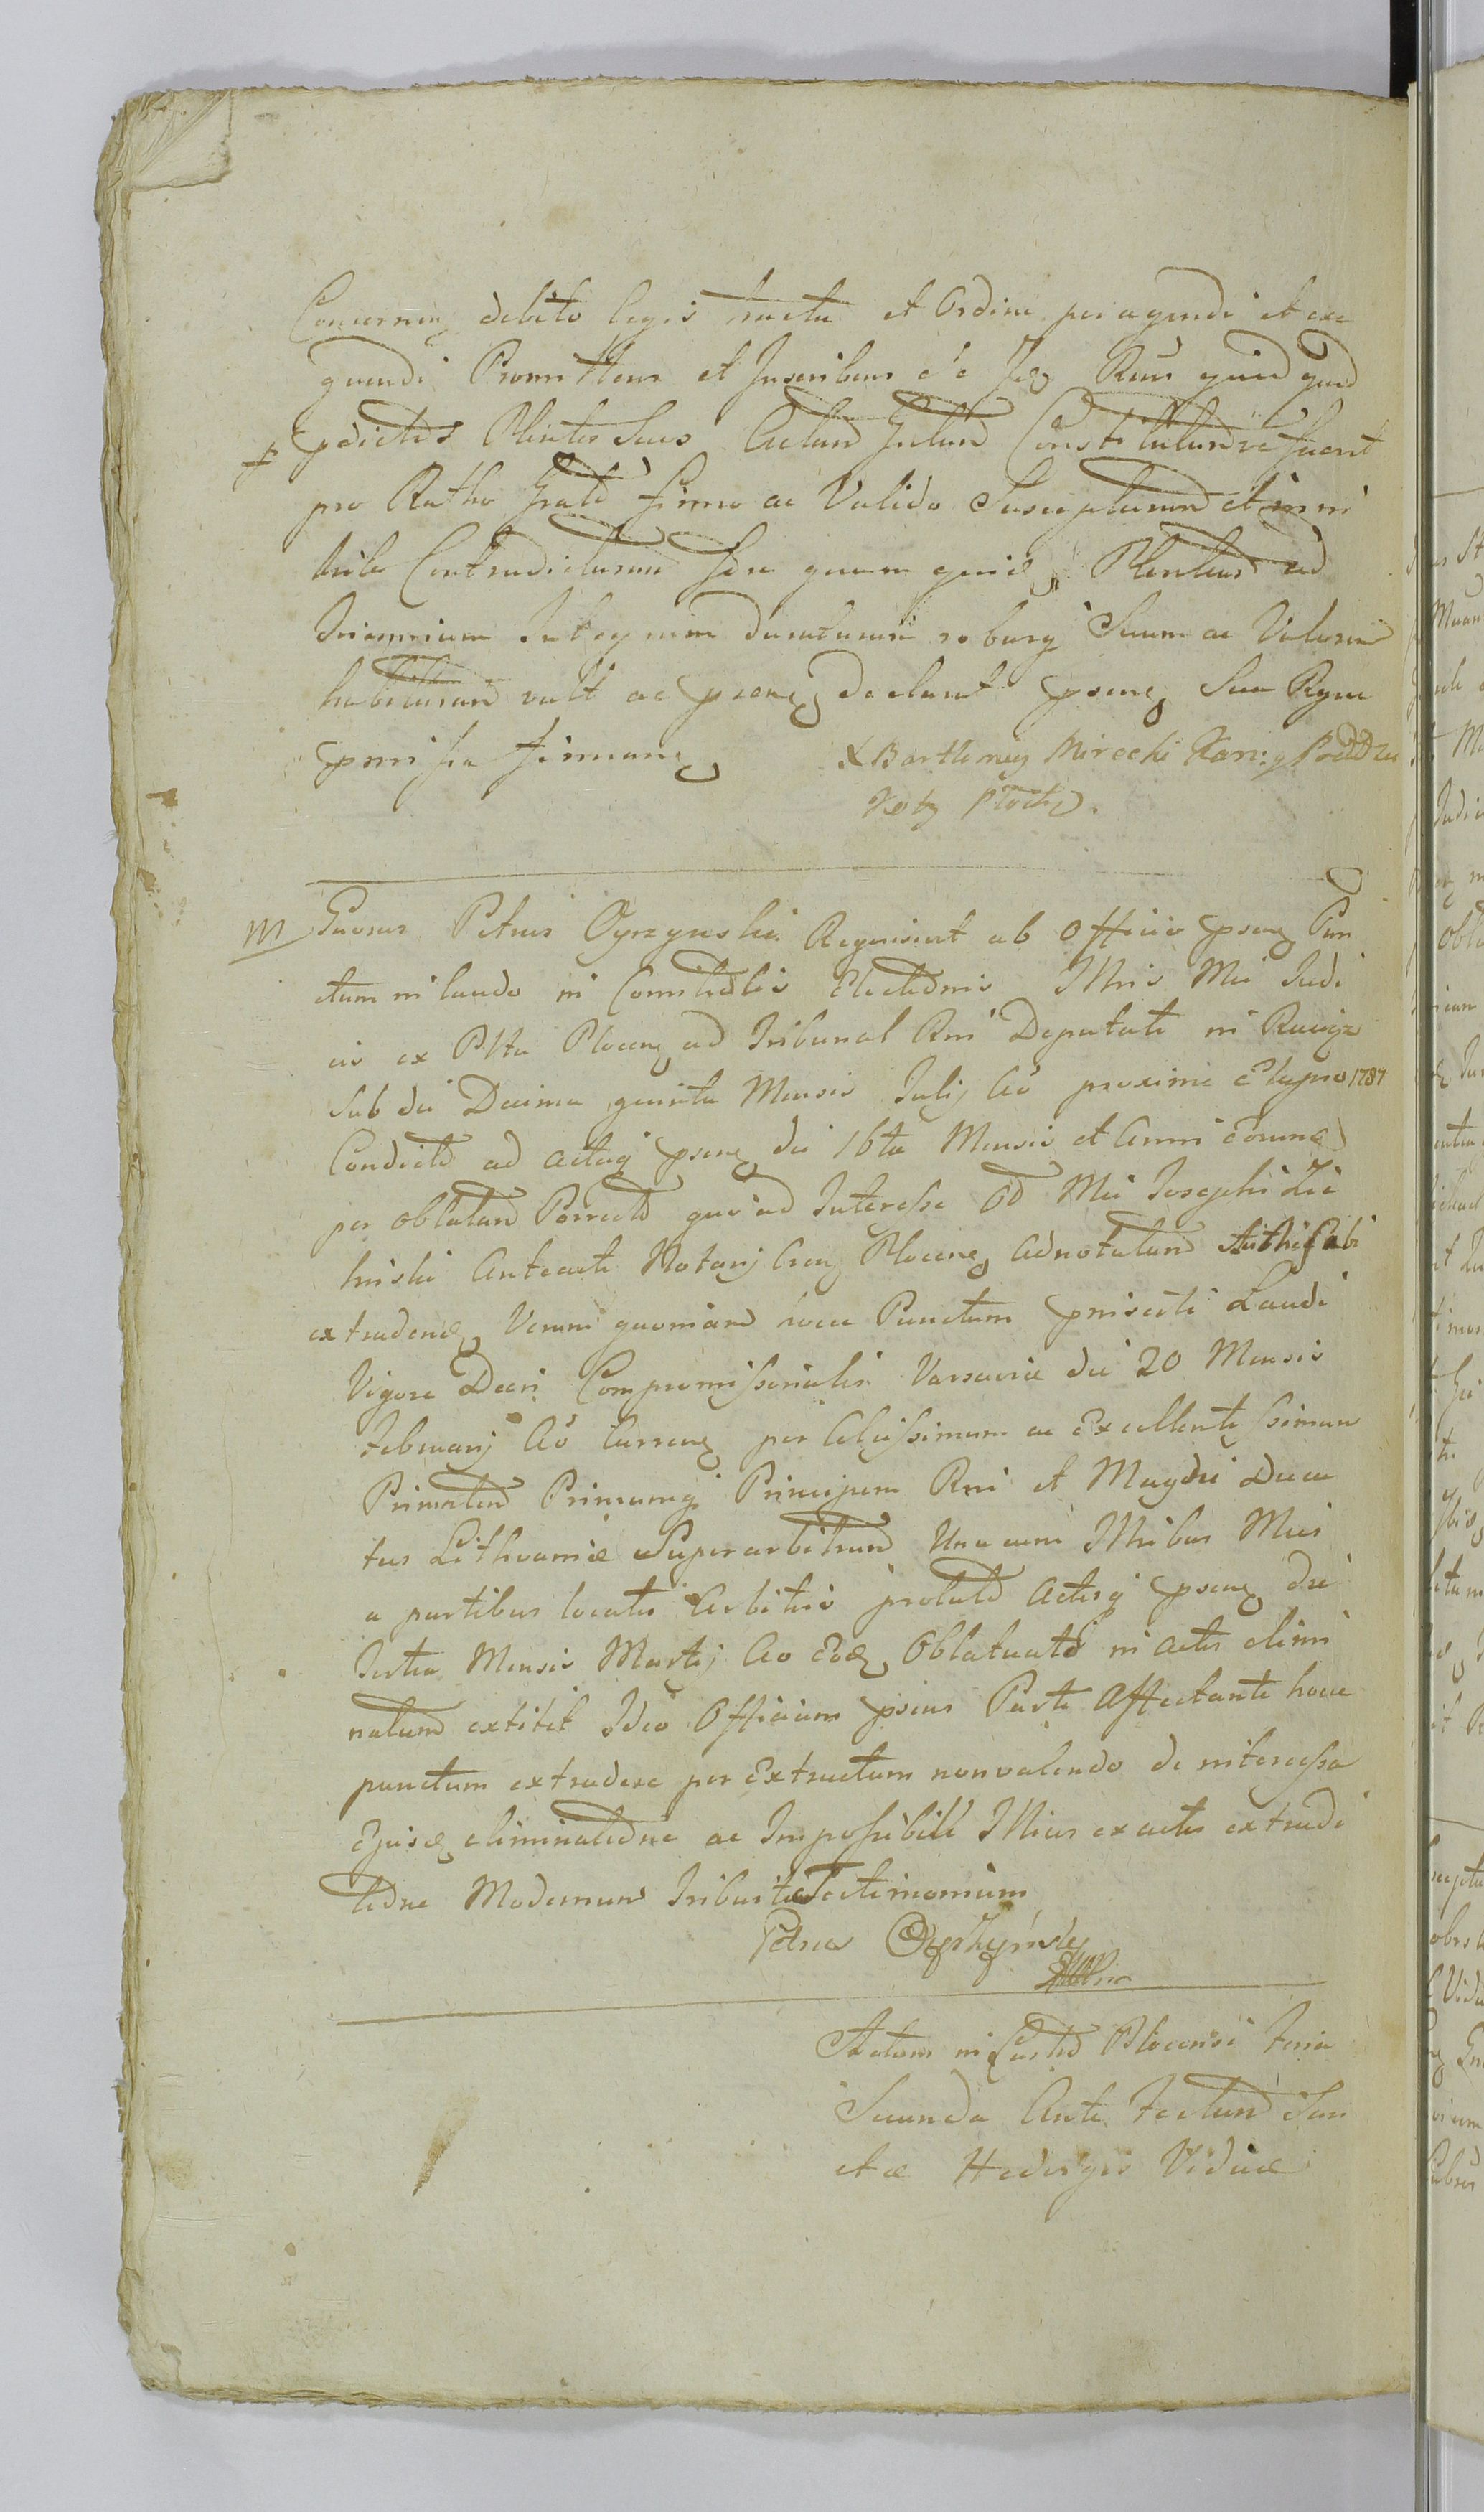 Concernen debito legis tractu et Ordine peragendi et exe
quendi Promittens et Inscribens Se Ius Rum quidquid
pdictos Plentes Suos Actum Gestum Constitutumve fuerit
pro Ratho Grato firmo ac Valido Suscepturum et in ni
hilo Contradicturum
Triennium Integrum duraturum roburq Suum ac Valorem
habituram vult ac psenq declarat psenq Sua Rgne
pmissa firmanq
X Bartlomiey Mirecki Kan: y
Katy Płocki.
m Gnosus Petrus Oyrzynski Requisivit ab Officio psenq Pun
ctum in laudo in Comitiolis Electionis Illris Mci Iudi
cis ex Pltu Plocenq ad Tribunal Rni Deputati in Raciąz
sub die Decima quinta Mensis Julij Ao proxime Elapso 1787
Condicto ad actaq psenq die 16ta Mensis et Anni eorund
per oblatam Porrecto quoad Interesse Gd Mci Josephi Zie
linski Anteacti Notarij Cren Plocenq Adnotatum Authe Sibi
extradendq Verum quoniam hocce Punctum pmissi Laudi
Vigore Decri Compromissorialis Varsavie die 20 Mensis
Februarij Ao Currenq per Celsissimum ac Excellentissimum
Primatem Primumq Principem Rni et Magni Duca
tus Lithvaniæ Superarbitrum Una cum Illribus Mcis
a partibus locatis Arbitris prolato Actisq psenq die
Tertia Mensis Martij Ao Eodq Oblatuato in actis elimi
natum extitit Ideo Officium psens Parte Affectante hocce
punctum extradere per Extractum non valendo de interesse
Ejusdq eliminatione ac Impossibili Illius ex actis extradi
tione Modernum Tribuit Testimonium
Petrus Oyrzynsky
Actum in Castro Plocensi Feria
Secunda Ante Festum San
ctæ Hedvigis Viduæ